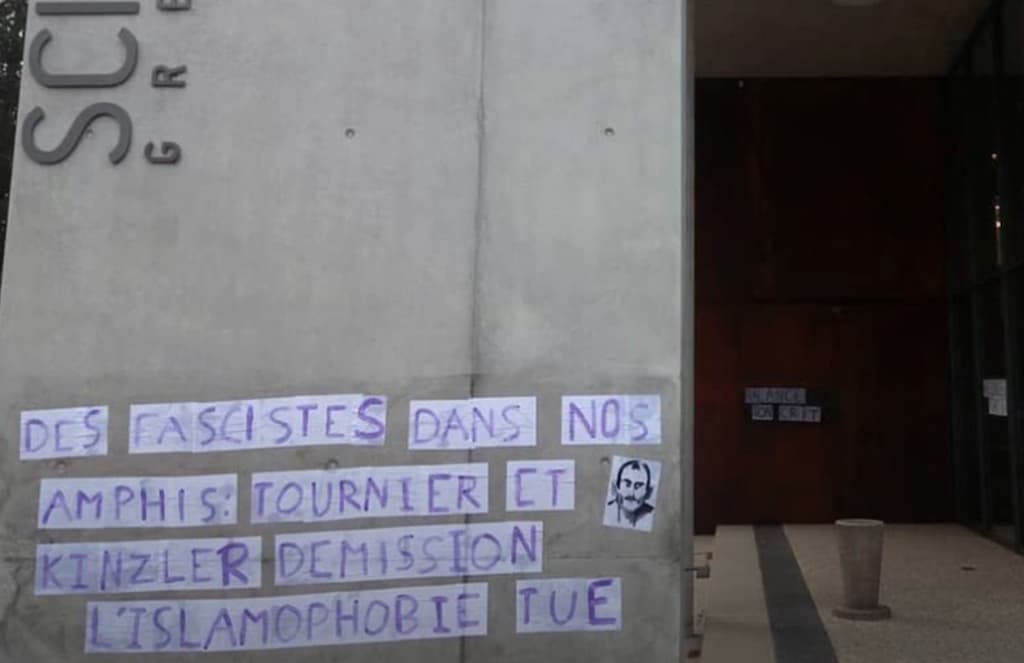 SCI
GRE
DES FASCISTES DANS NOS
AMPHIS: TOURNIER ET
KINZLER DEMISSION
L'ISLAMOPHOBIE TUE